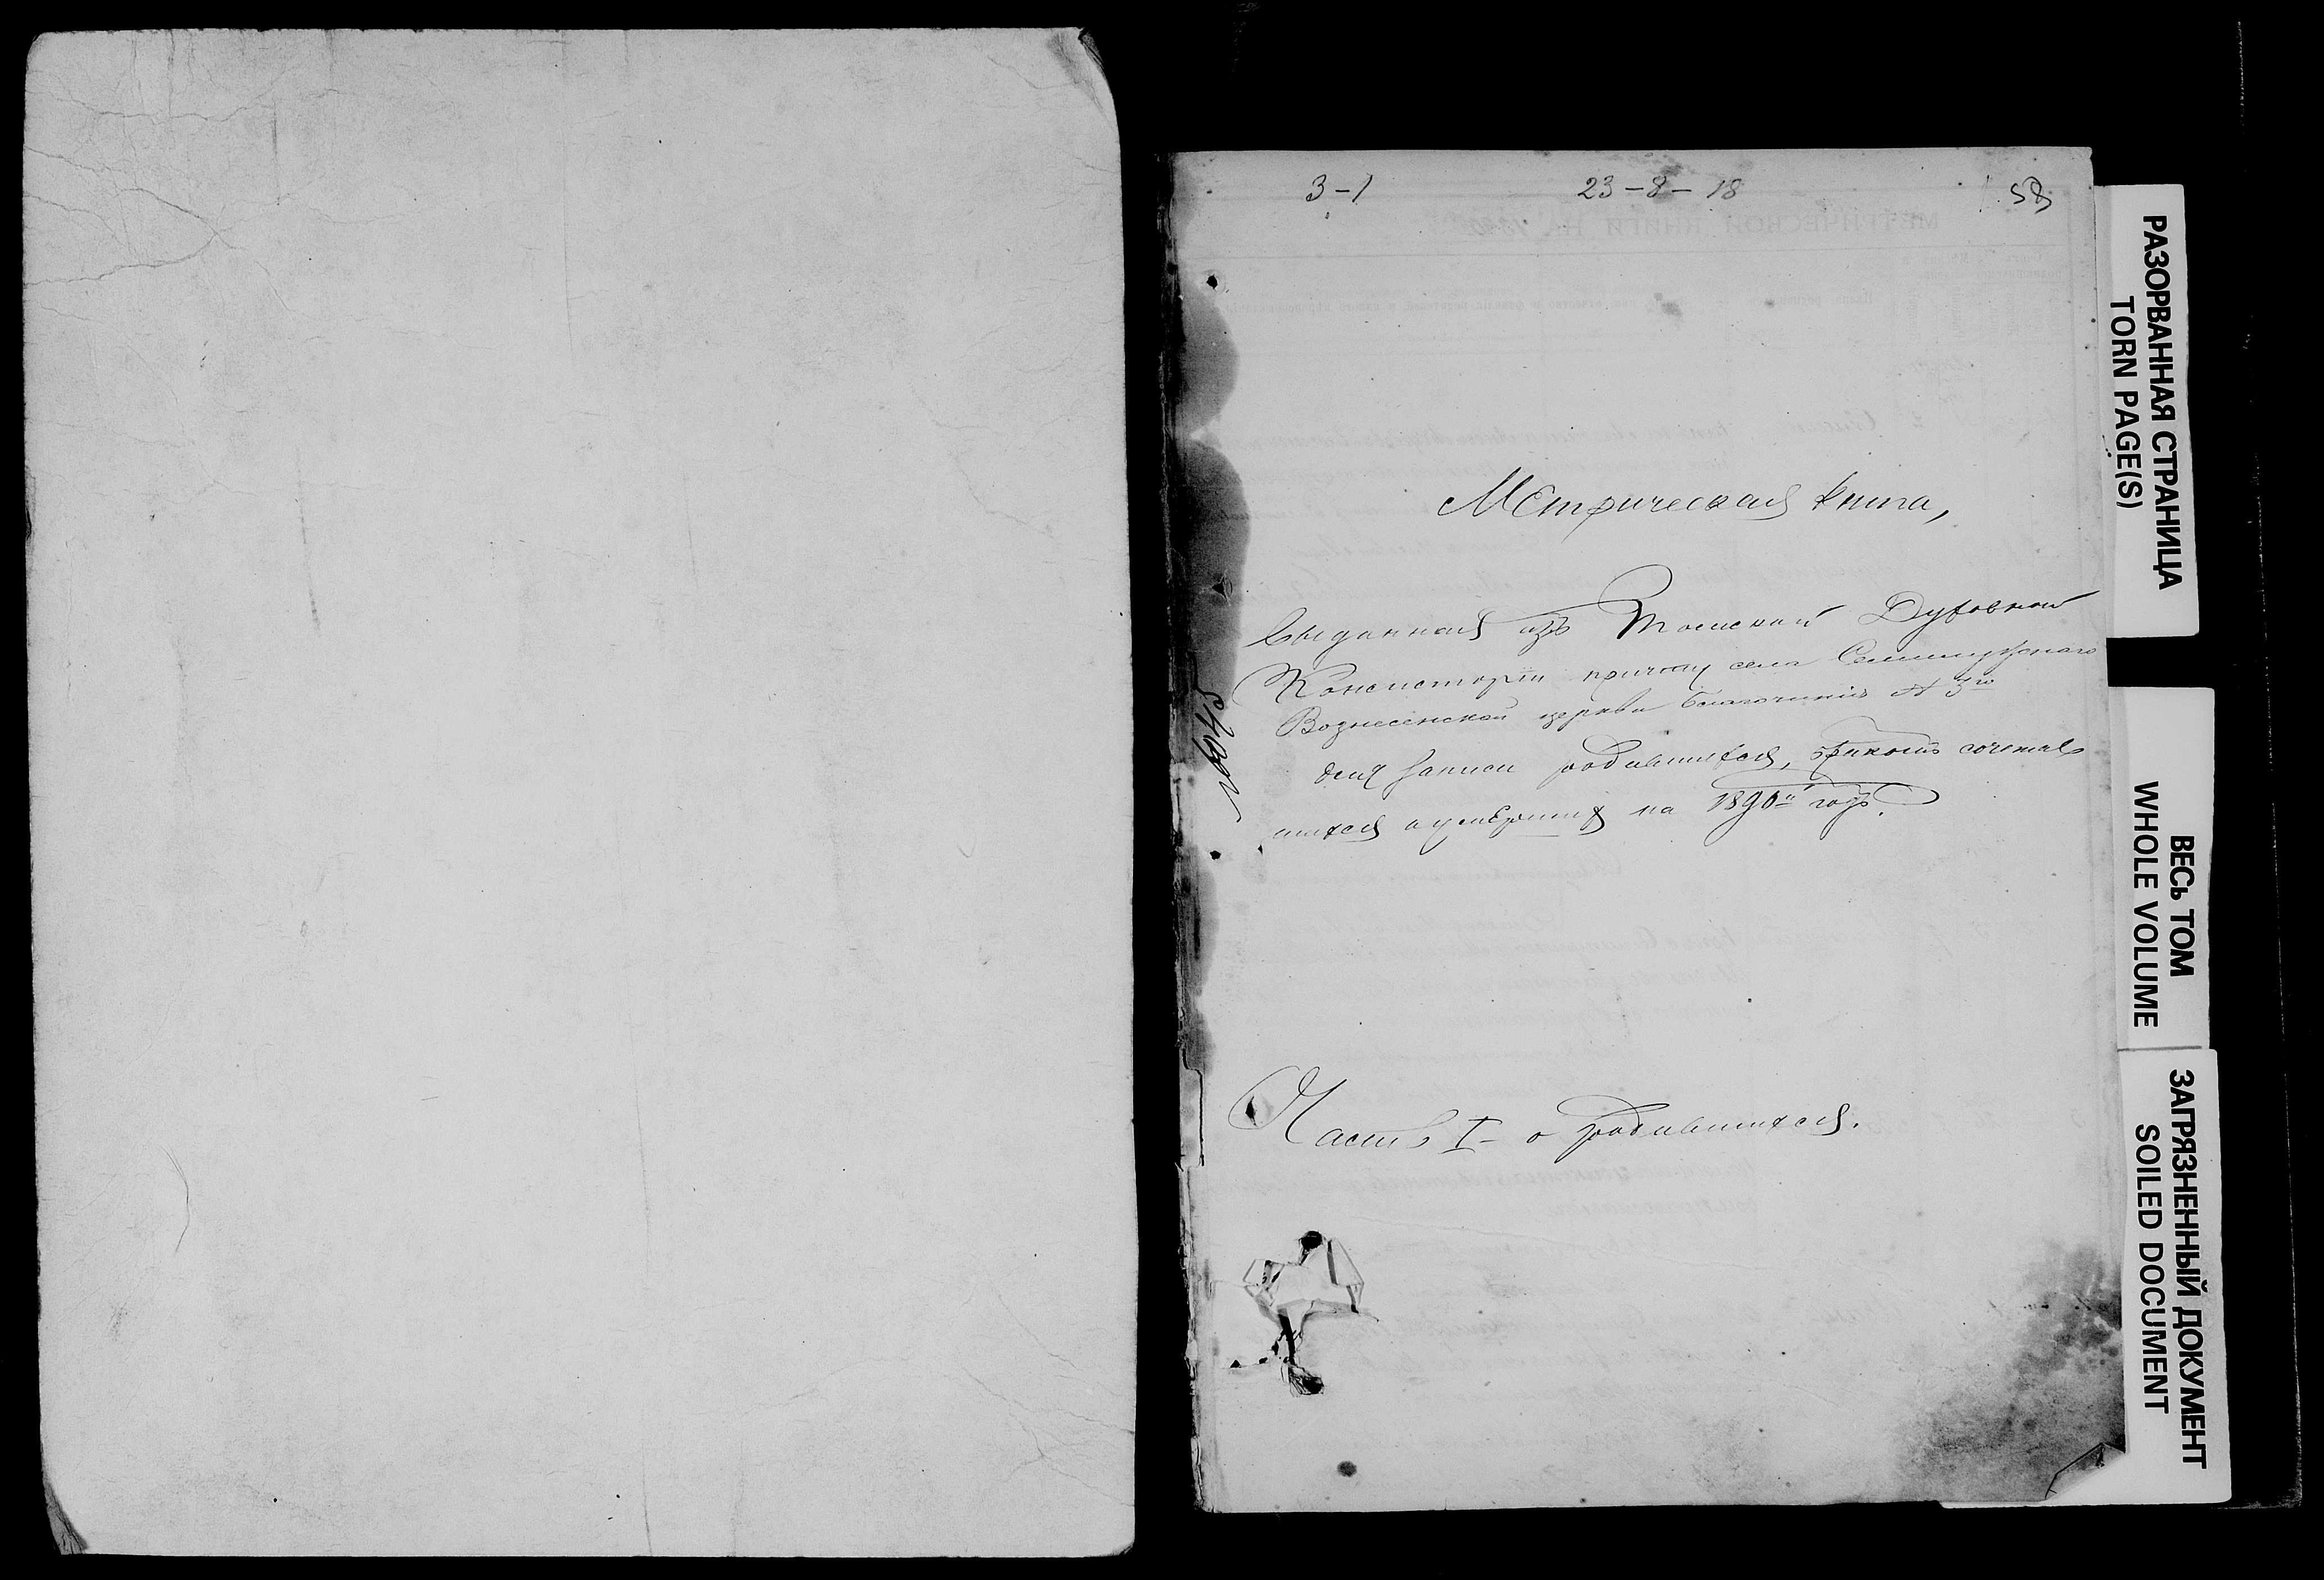 3-1 23-8-18 58
Метрическая книга,
выданная изъ Томской Духовной
Консисторіи причту села Семилужнаго
Вознесенской церкви благочинія № 3го
для записи родившихся, бракомъ сочетав
шихся и умершихъ на 1890й годъ.
Часть I о родившихся.
РАЗОРВАННАЯ СТРАНИЦА
TORN PAGE(S)
ВЕСЬ ТОМ
WHOLE VOLUME
ЗАГРЯЗНЕННЫЙ ДОКУМЕНТ
SOILED DOCUMENT